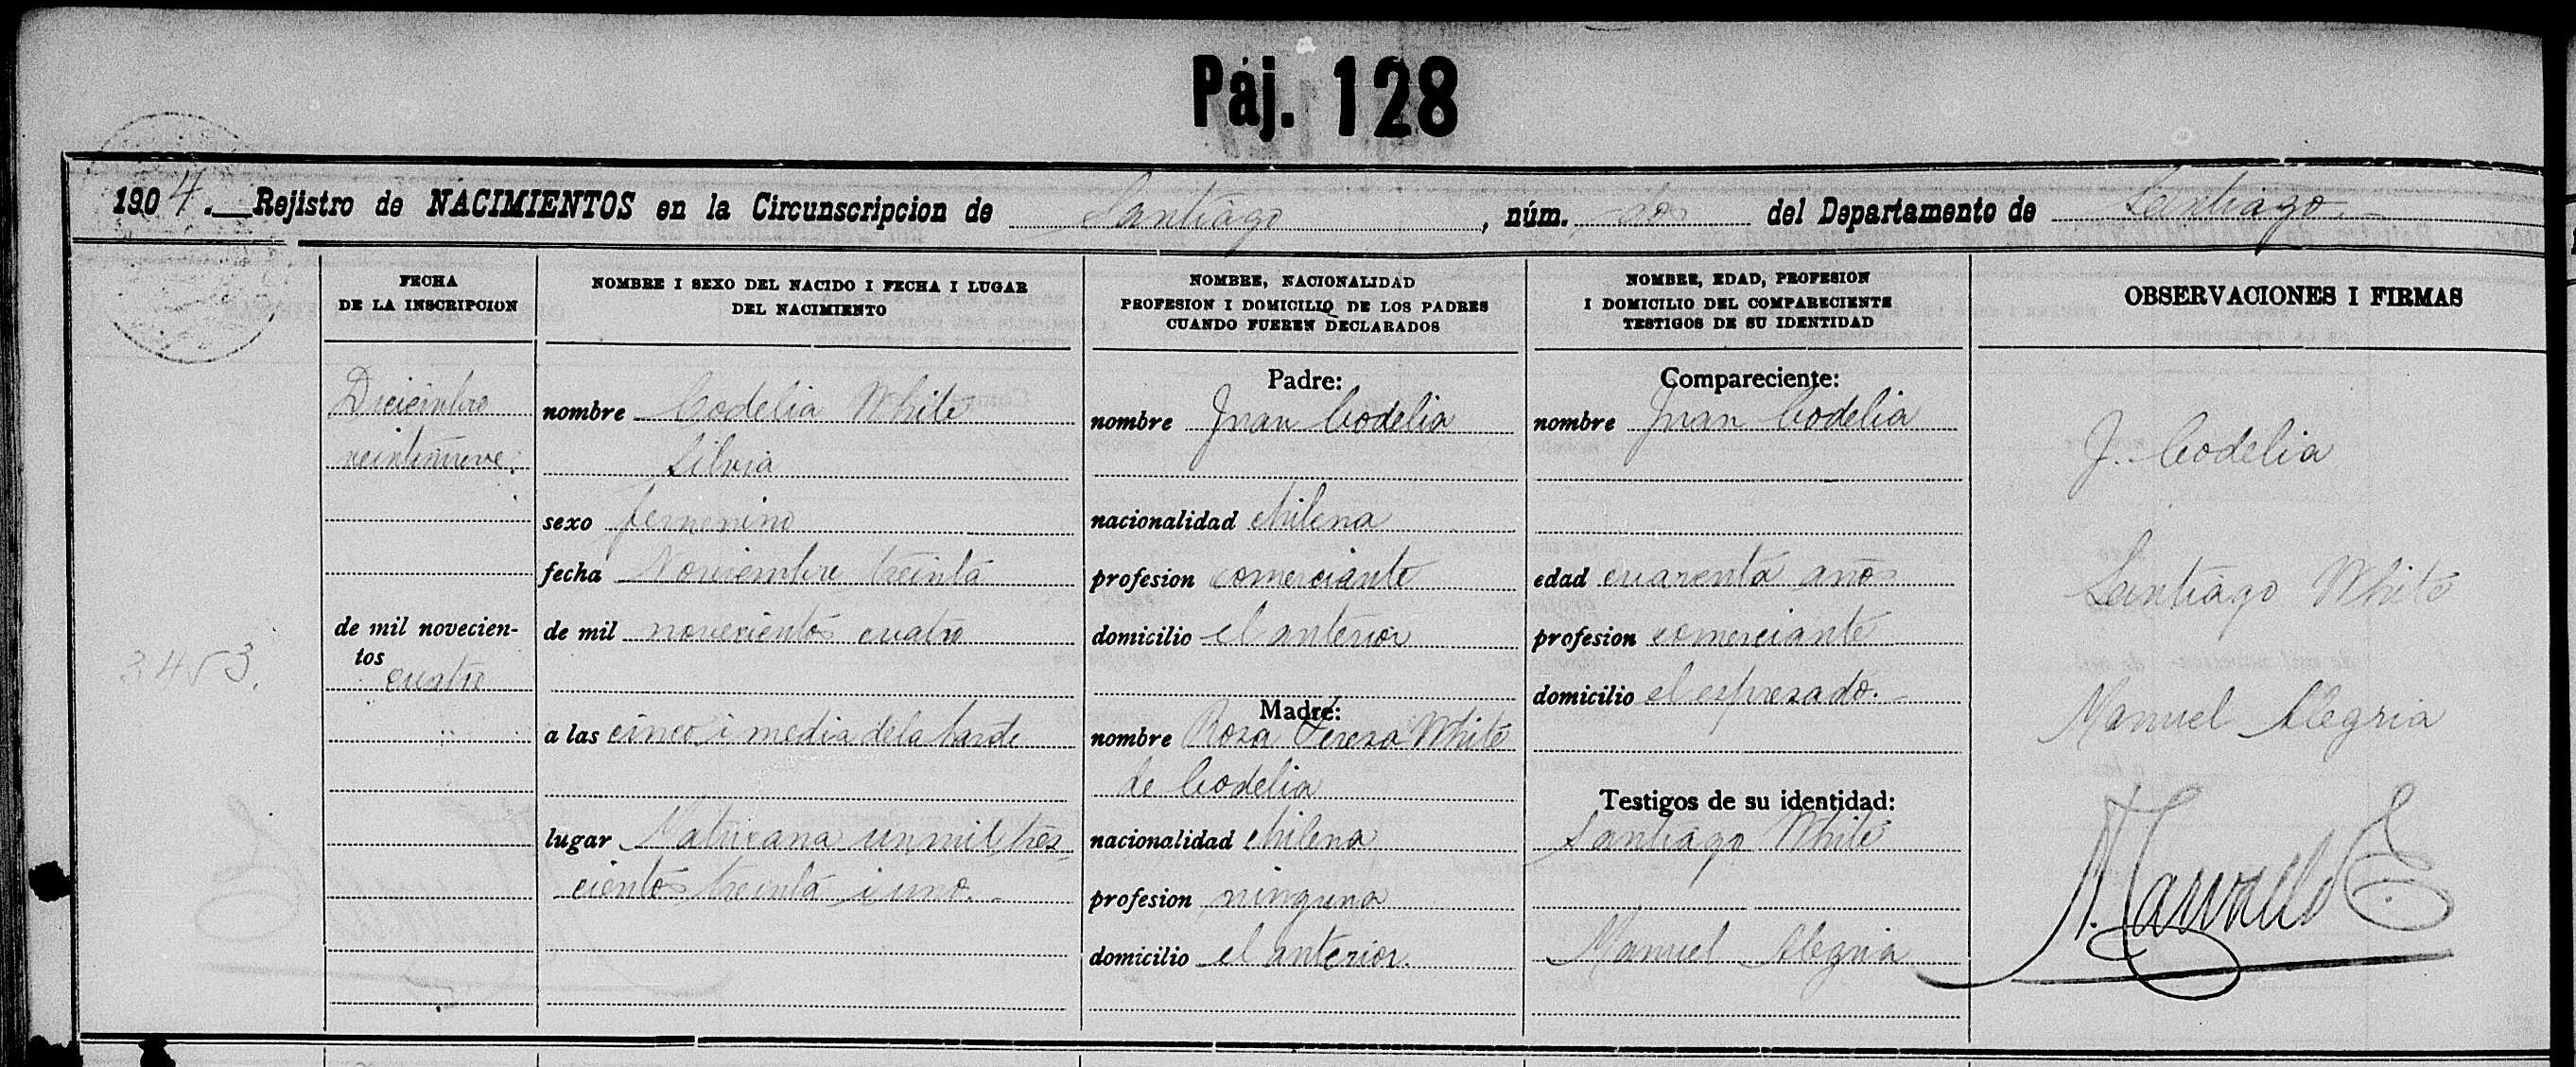 Páj. 128
1904.—Rejistro de NACIMIENTOS en la Circunscripcion de Santiago, núm. dos del Departamento de Santiago.
FECHA
DE LA INSCRIPCION
Diciembre
veintinueve.
de mil novecien-
tos
cuatro
3453.
NOMBRE I SEXO DEL NACIDO I FECHA I LUGAR
DEL NACIMIENTO
nombre Codelia White
Silvia
sexo femenino
fecha Noviembre treinta
de mil novecientos cuatro
a las cinco i media de la tarde
lugar Maturana un mil tres-
cientos treinta i uno.
NOMBRE, NACIONALIDAD
PROFESION I DOMICILIO DE LOS PADRES
CUANDO FUEREN DECLARADOS
Padre:
nombre Juan Codelia
nacionalidad chilena
profesion comerciante
domicilio el anterior
Madre:
nombre Rosa Teresa White
de Codelia
nacionalidad chilena
profesion ninguna
domicilio el anterior.
NOMBRE, EDAD, PROFESION
I DOMICILIO DEL COMPARECIENTE
TESTIGOS DE SU IDENTIDAD
Compareciente:
nombre Juan Codelia
edad cuarenta años
profesion comerciante
domicilio el espresado.
Testigos de su identidad:
Santiago White
Manuel Alegria
OBSERVACIONES I FIRMAS
J. Codelia
Santiago White
Manuel Alegria